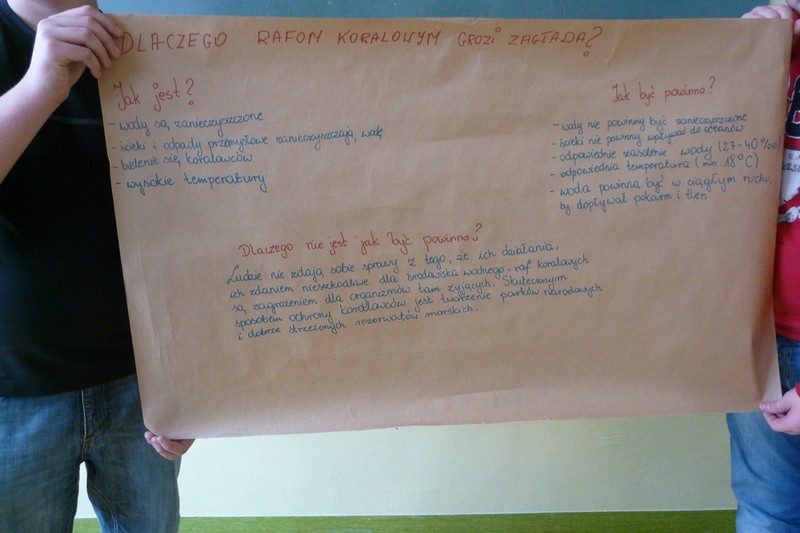 DLACZEGO RAFOM KORALOWYM GROZI ZAGŁADA?
Jak jest?
- wody są zanieczyszczone
- ścieki i odpady przemysłowe zanieczyszczają wodę
- bielenie się koralowców
- wysokie temperatury
Jak być powinno?
- wody nie powinny być zanieczyszczone
- ścieki nie powinny wpływać do oceanów
- odpowiednie zasolenie wody (27-40‰)
- odpowiednia temperatura (min 18°C)
- woda powinna być w ciągłym ruchu,
by dopływał pokarm i tlen
Dlaczego nie jest jak być powinno?
Ludzie nie zdają sobie sprawy z tego, że ich działania,
ich zdaniem nieszkodliwe dla środowiska wodnego - raf koralowych
są zagrożeniem dla organizmów tam żyjących. Skutecznym
sposobem ochrony koralowców jest tworzenie parków narodowych
i dobrze strzeżonych rezerwatów morskich.